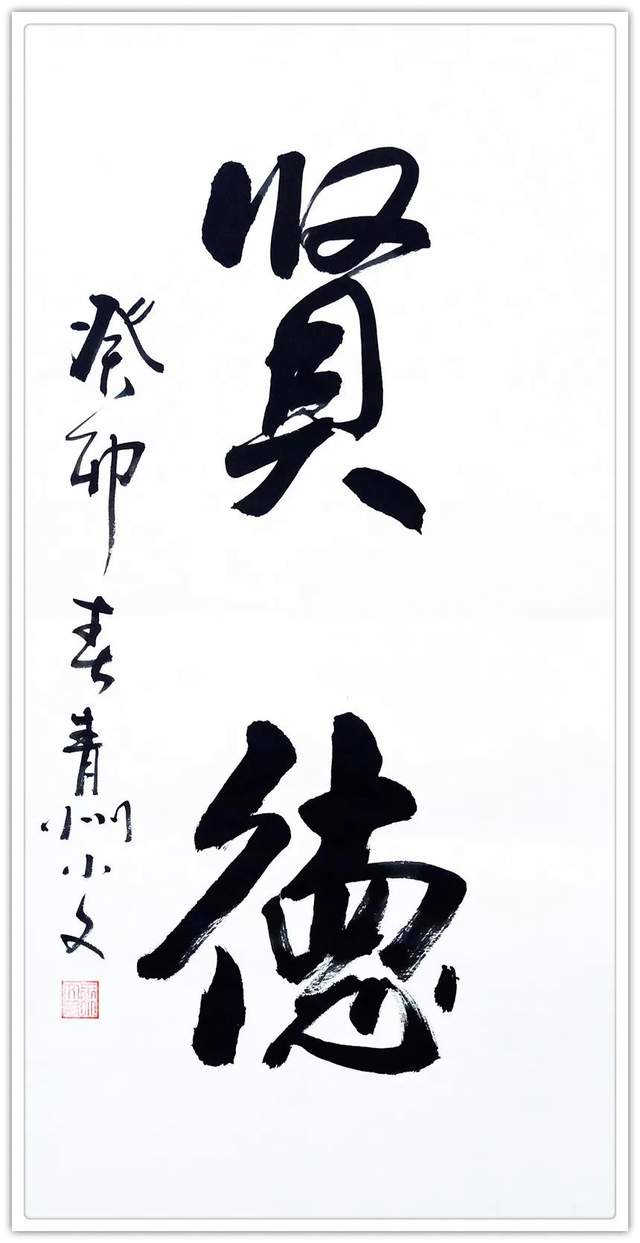 賢德
癸卯春青州小文